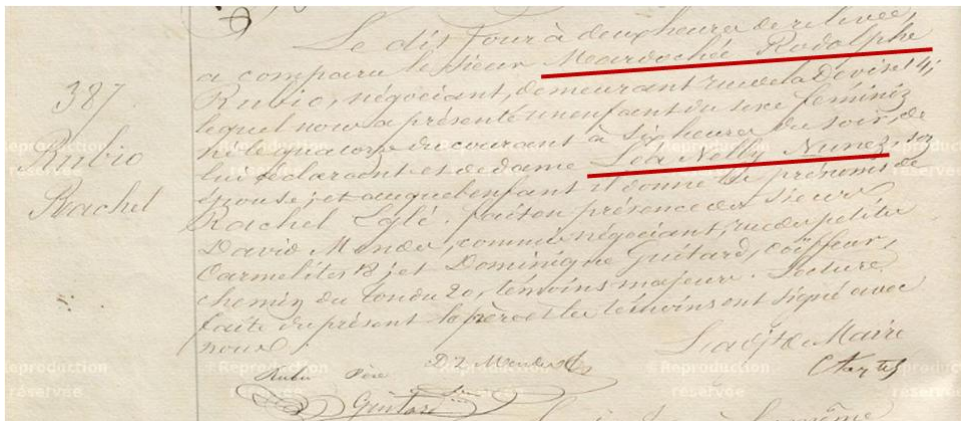 Le dit jour à deux heures de relevée,
a comparu le sieur Mardochée Rodolphe
387
Rubio, négociant, demeurant rue de la Devise 14,
lequel nous a présenté un enfant du sexe féminin
né le quatorze du courant à six heures du soir, de
Rubio
lui déclarant et de dame Léa Nelly Nunez, son
épouse; et auquel enfant il donne les prénoms de
Rachel
Rachel Eglé. fait en présence des sieurs
David Mendes, commis négociant, rue des petites
Carmelites 18; et Dominique Guitard, coiffeur,
chemin du tondu 20, témoins majeurs. Lecture
faite du présent le père et les témoins ont signé avec
nous.
L'adjt de Maire
Rubio Père D Z Mendes
Guitard
Reproduction réservée